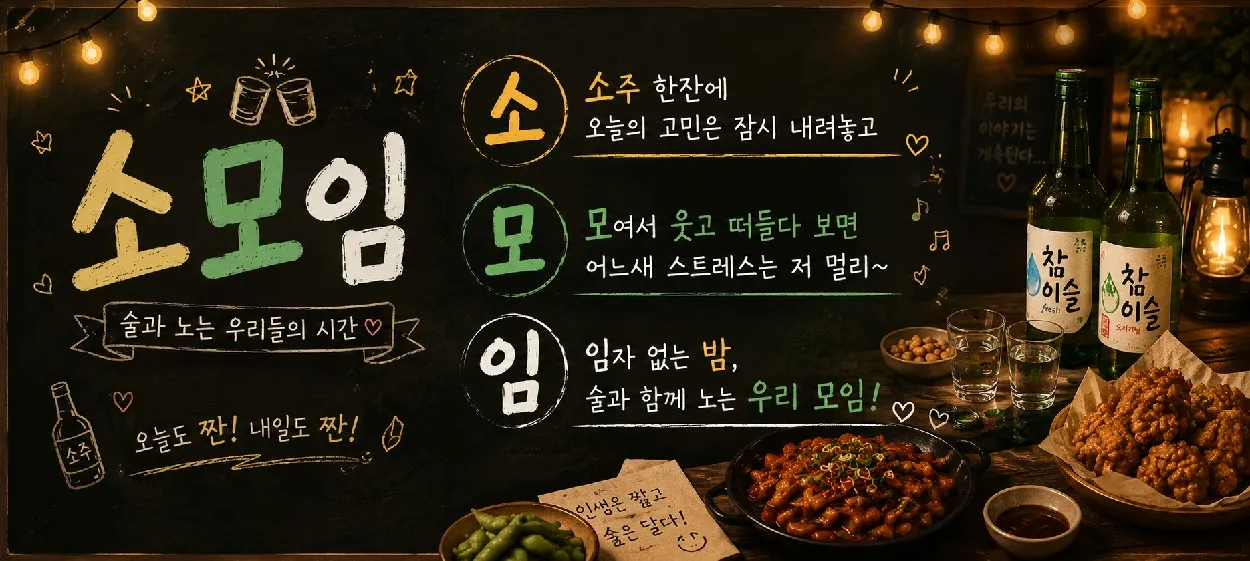 소모임
술과 노는 우리들의 시간
소주
오늘도 짠! 내일도 짠!
소
소주 한잔에
오늘의 고민은 잠시 내려놓고
모
모여서 웃고 떠들다 보면
어느새 스트레스는 저 멀리~
임
임자 없는 밤,
술과 함께 노는 우리 모임!
우리의
이야기는
계속된다...
참이슬
fresh
참이슬
오리지널
인생은 짧고
술은 달다!